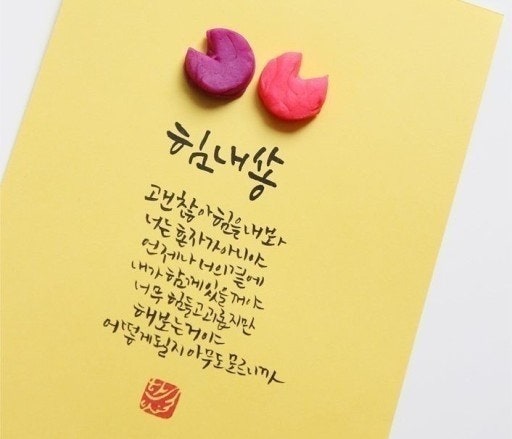 힘내쏭
괜찮아 힘을 내 봐
너는 혼자가 아니야
언제나 너의 곁에
내가 함께 있을 꺼야
너무 힘들고 괴롭지만
해보는 거야
어떻게 될지 아무도 모르니까